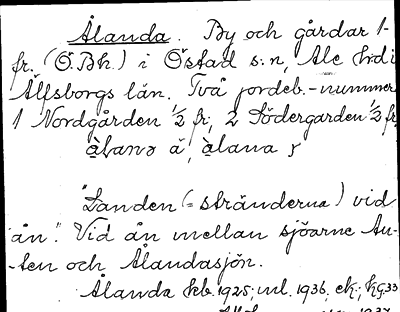 Ålanda. By och gårdar 1-
fr. (Ö.Bh.) i Östad s:n, Ale hd i
Älfsborgs län. Två jordeb.-nummer
1 Nordgården 1/2 fr, 2 Södergården 1/2 fr
"Landen (= stränderna) vid
ån." Vid ån mellan sjöarne An-
-ten och Ålandasjön.
Ålanda kb. 1925; ml. 1936, ek; kg. 33